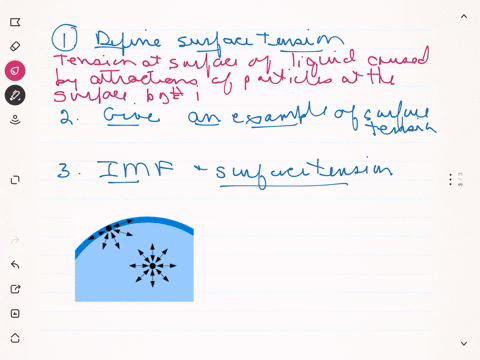 1 Define surface tension
Tension at surface of liquid caused
by attractions of particles at the
surface by
2. Give an example of surface
tension
3. IMF + surface tension
3 / 3